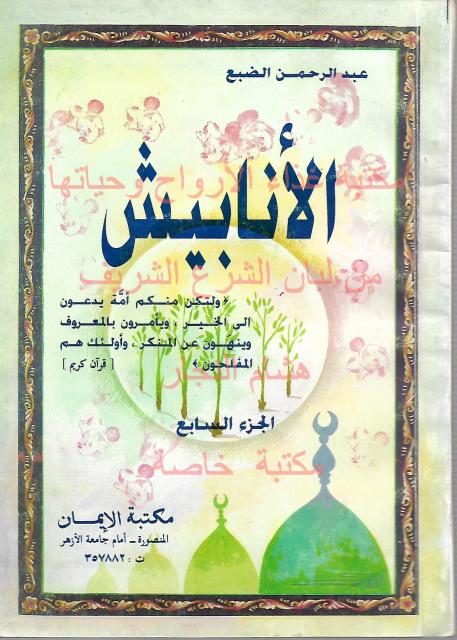 عبد الرحمن الضبع
مكتبة غذاء الارواح وحياتها
الأنابيش
من لبان الشرع الشريف
﴿ ولتكن منكم أمّة يدعون
الى الخير ، ويأمرون بالمعروف
وينهون عن المنكر ، وأولئك هم
المفلحون ﴾ [ قرآن كريم ]
هشام النجار
الجزء السابع
مكتبة خاصة
مكتبة الإيمان
المنصورة – أمام جامعة الأزهر
ت : ٣٥٧٨٨٢